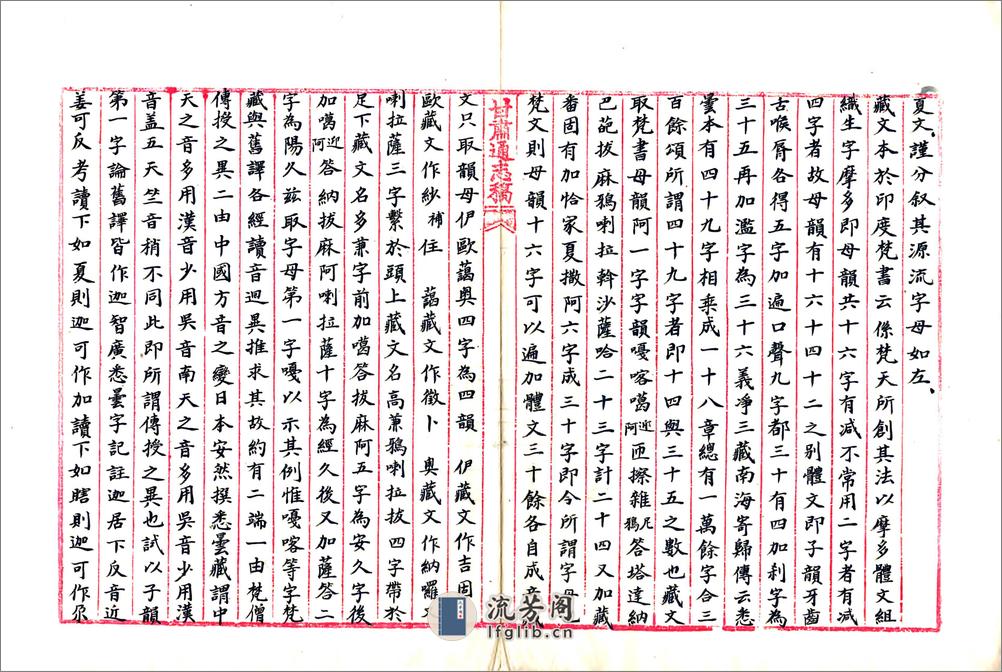 夏文、謹分叙其源流字母如左、
藏文本於印度梵書云係梵天所創其法以摩多體文組
織生字摩多即母韻共十六字有減不常用二字者有減
四字者故母韻有十六十四十二之别體文即子韻牙齒
古喉唇各得五字加遍口聲九字都三十有四加刹字為
三十五再加濫字為三十六義凈三藏南海寄歸傳云悉
曇本有四十九字相乘成一十八章總有一萬餘字合三
百餘頌所謂四十九字者即十四與三十五之數也藏文
取梵書母韻阿一字字韻嗄喀噶迎阿匝擦雜尼鴉答塔達納
巴葩拔麻鴉喇拉幹沙薩哈二十三字計二十四又加藏
番固有加恰家夏撒阿六字成三十字即今所謂字母也
梵文則母韻十六字可以遍加體文三十餘各自成音藏
甘肅通志稿
文只取韻母伊歐藹奥四字為四韻 伊藏文作吉固
歐藏文作紗補住 藹藏文作徵卜 奥藏文作納囉
喇拉薩三字繫於頭上藏文名高兼鴉喇拉拔四字帶於
足下藏文名多兼字前加噶答拔麻阿五字為安久字後
加噶迎阿答納拔麻阿喇拉薩十字為經久後又加薩答二
字為陽久兹取字母第一字嗄以示其例惟嗄喀等字梵
藏與舊譯各經讀音迥異推求其故約有二端一由梵僧
傳授之異二由中國方音之變日本安然撰悉曇藏謂中
天之音多用漢音少用吳音南天之音多用吳音少用漢
音盖五天竺音稍不同此即所謂傳授之異也試以子韻
第一字論舊譯皆作迦智廣悉曇字記註迦居下反音近
姜可反考讀下如夏則迦可作加讀下如瞎則迦可作尕
流芳阁
lfglib.cn